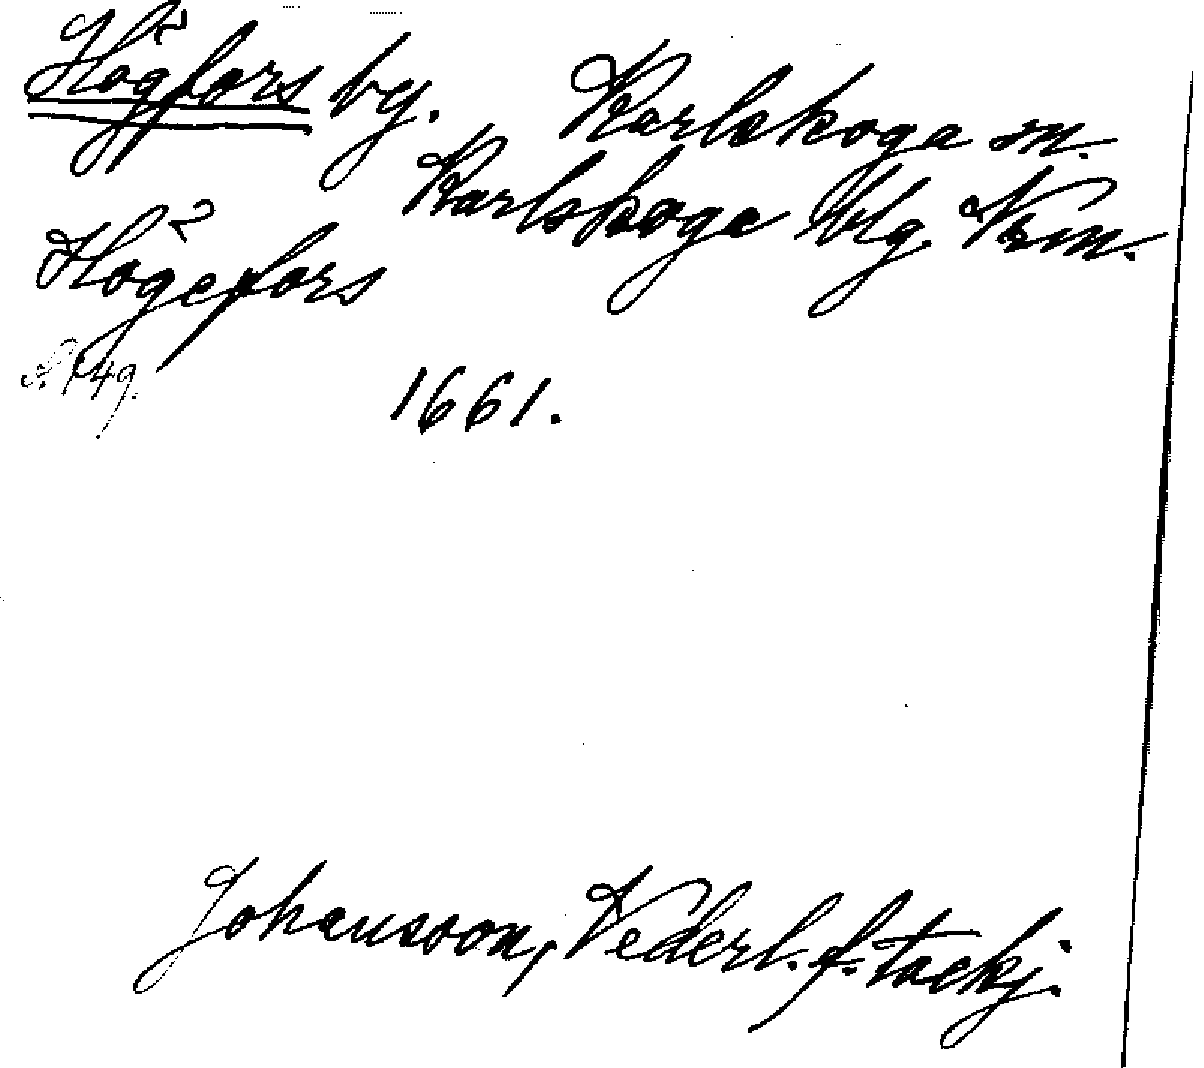 Högfors by. Karlskoga sn.
Karlskoga blg Vrm.
Högefors
s. 149.
1661.
Johansson, Vederl. f. tackj.